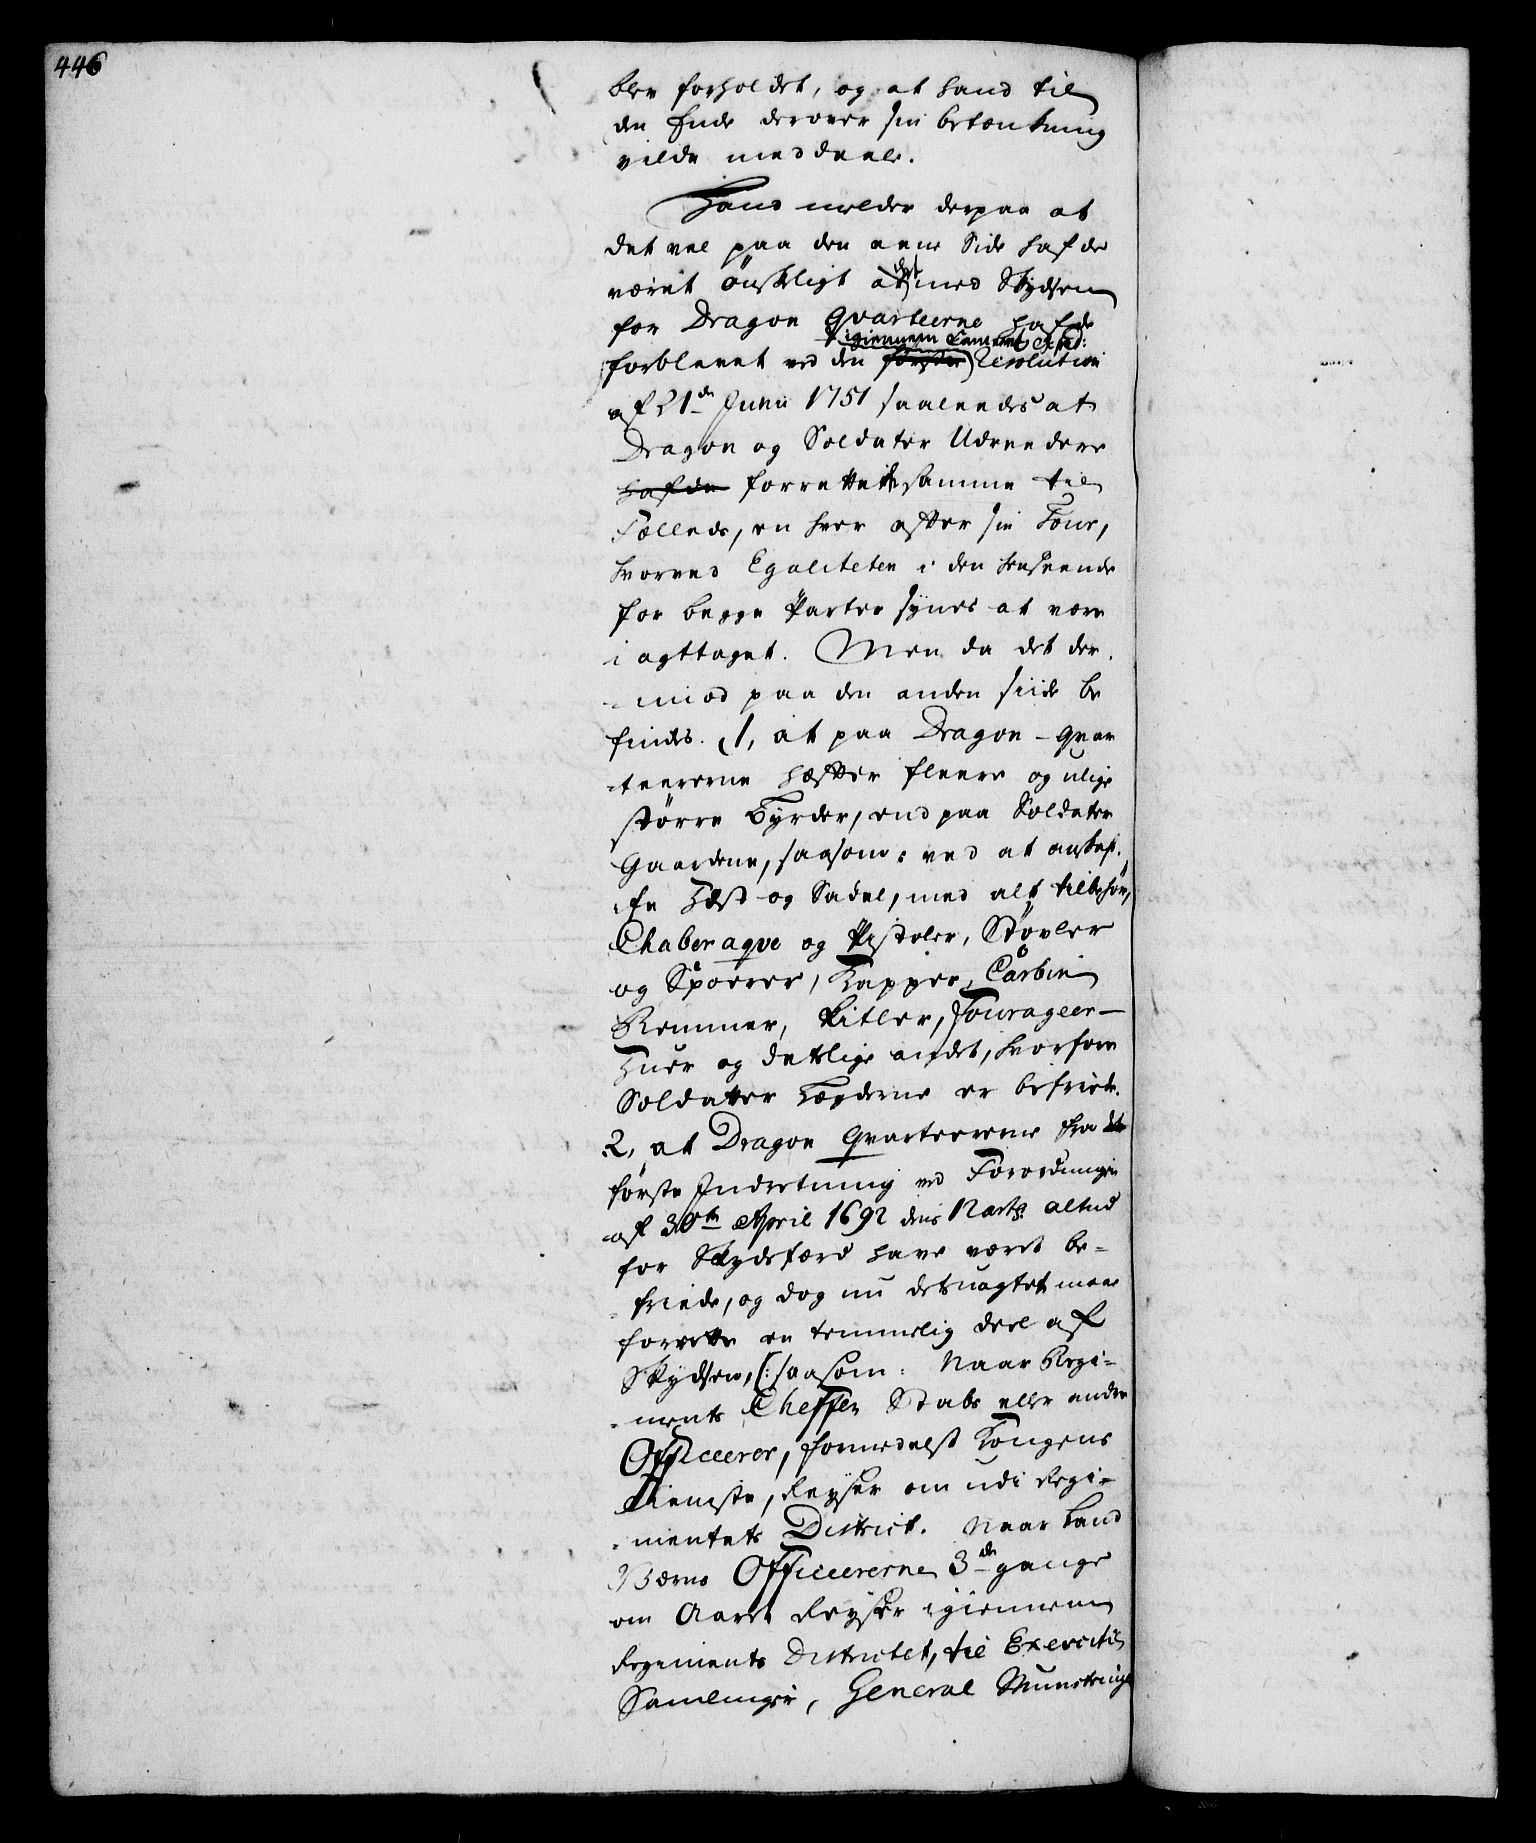 446
blev forholdet, og at hand til
den Ende derover sin betænkning
vilde meddeele.
Hand melder derpaa at
det vel paa den eene Side hafde
været ønskeligt at det med Skydsen
for Dragon Qvarteerne hafde
forbleeet ved den første igiennem Cammeret Resolution
af 21de Junii 1751 saaleedes at
Dragon og Soldater Udreedere
hafde forrettede samme til
Fælleds, en hver efter sin Tour,
hvorved Egaliteten i den henseende
for begge Parter synes at være
i agttaget. Men da det der
imod paa den anden siide be
findes. 1, at paa Dragon-Qvar
teererne hæfter fleere og ulige
større Byrder, end paa Soldater
Gaardene, saasom: ved at anskaf
fe Hest og Sadel, med alt tilbehør,
Chaberaqve og Pistoler, Støvler
og Spoerer, Kapper, Carbin
Remmer, Kitler, Fourageer-
Huer og detslige andet, hvorfore
Soldatter Lægderne er befriede.
2, at Dragon Qvarteererne fra det
første Indretning ved Forordningen
af 30te April 1692 dens 12 art: altiid
for Skydsfærd have været be-
friede, og dog nu detsuagtet maae
forrette en temmelig deel af
Skydsen, (: saasom: Naar Regi-
ments Cheffen Stabs eller andre
Officeerer, formedelst Kongens
Tieneste, Reyser om udi Regi-
mentets District. Naar Land
Værns Officeererne 3de gange
om Aaret Reyser igiennem
Regiments Districtet, til Exercitii
Samlinger, General Munstringe